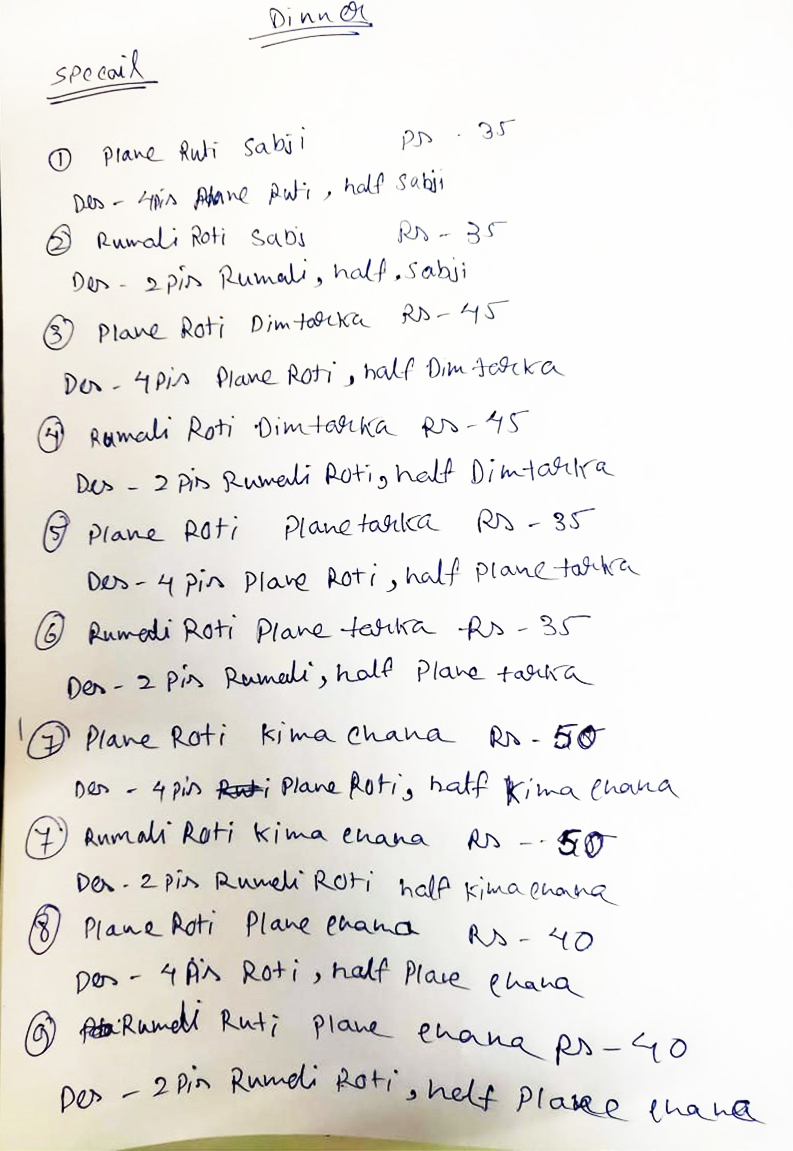 Dinner
Specail
① Plane Ruti Sabji Rs - 35
Des - 4pis Plane Ruti, half Sabji
② Rumali Roti Sabj Rs - 35
Des - 2 pis Rumali, half Sabji
③ Plane Roti Dimtarka Rs - 45
Des - 4 Pis Plane Roti, half Dim tarka
④ Rumali Roti Dimtarka Rs - 45
Des - 2 pis Rumali Roti, half Dimtarka
⑤ Plane Roti Planetarka Rs - 35
Des - 4 pis Plane Roti, half Planetarka
⑥ Rumali Roti Plane tarka Rs - 35
Des - 2 pis Rumali, half Plane tarka
⑦ Plane Roti Kima Chana Rs - 50
Des - 4 pis Plane Roti, half Kima Chana
⑦ Rumali Roti Kima Chana Rs - 50
Des - 2 pis Rumali Roti half Kima Chana
⑧ Plane Roti Plane Chana Rs - 40
Des - 4 Pis Roti, half Plane Chana
⑨ Rumali Ruti Plane Chana Rs - 40
Des - 2 Pis Rumali Roti, half Plane Chana